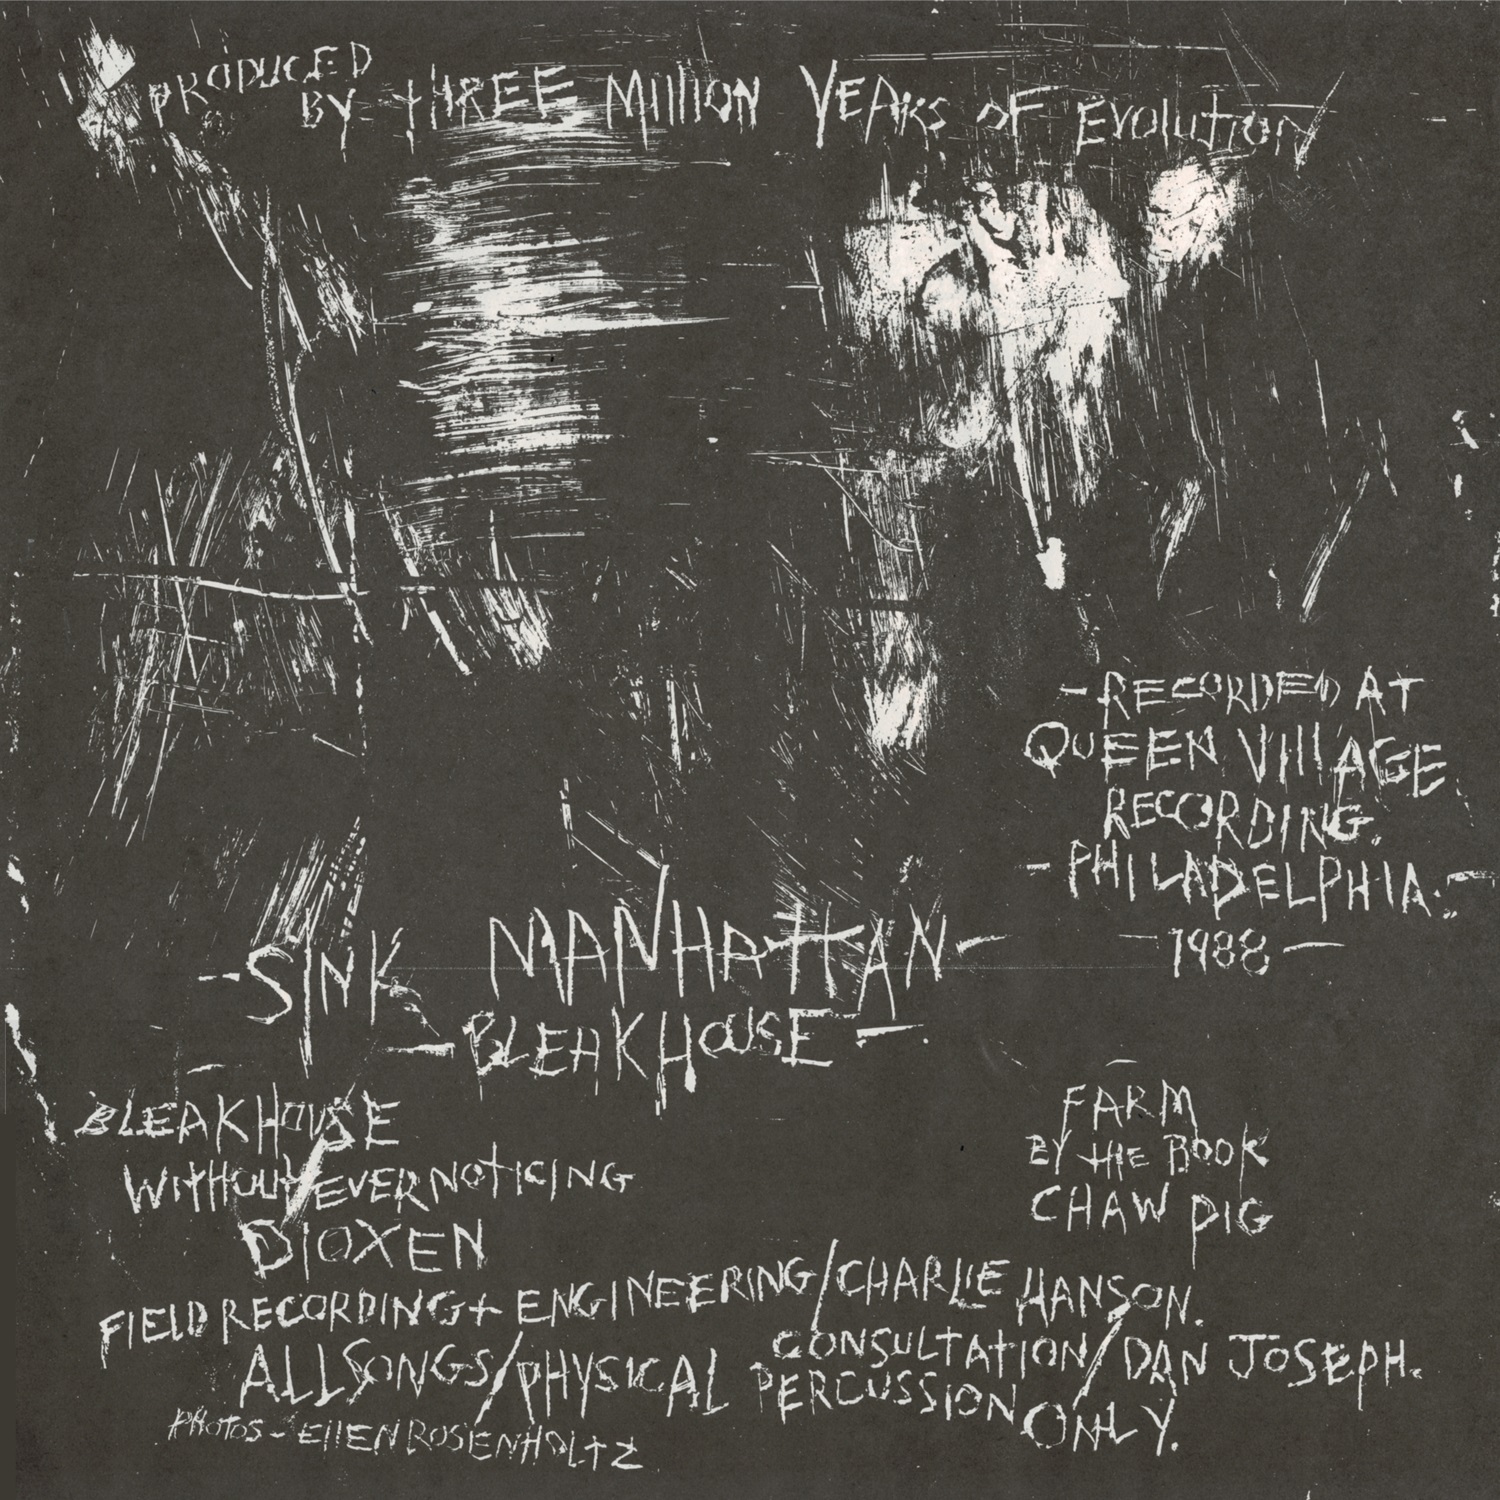 PRODUCED
BY THREE MIllION YEARS OF EVOlUtION
-RECORDED AT
QUEEN VIllAGE
RECORDING.
-PHILADELPHIA.-
-1988-
-SINK MANHAttAN-
-BLEAKHOUSE-
BLEAKHOUSE
WITHOUT EVER NOTICING
DIOXEN
FARM
BY tHE BOOK
CHAW PIG
FIELD RECORDING + ENGINEERING/CHARLIE HANSON.
CONSULTATION/DAN JOSEPH.
ALL SONGS/PHYSICAL PERCUSSION ONLY.
PHOTOS - EllEN ROSENHOLTZ